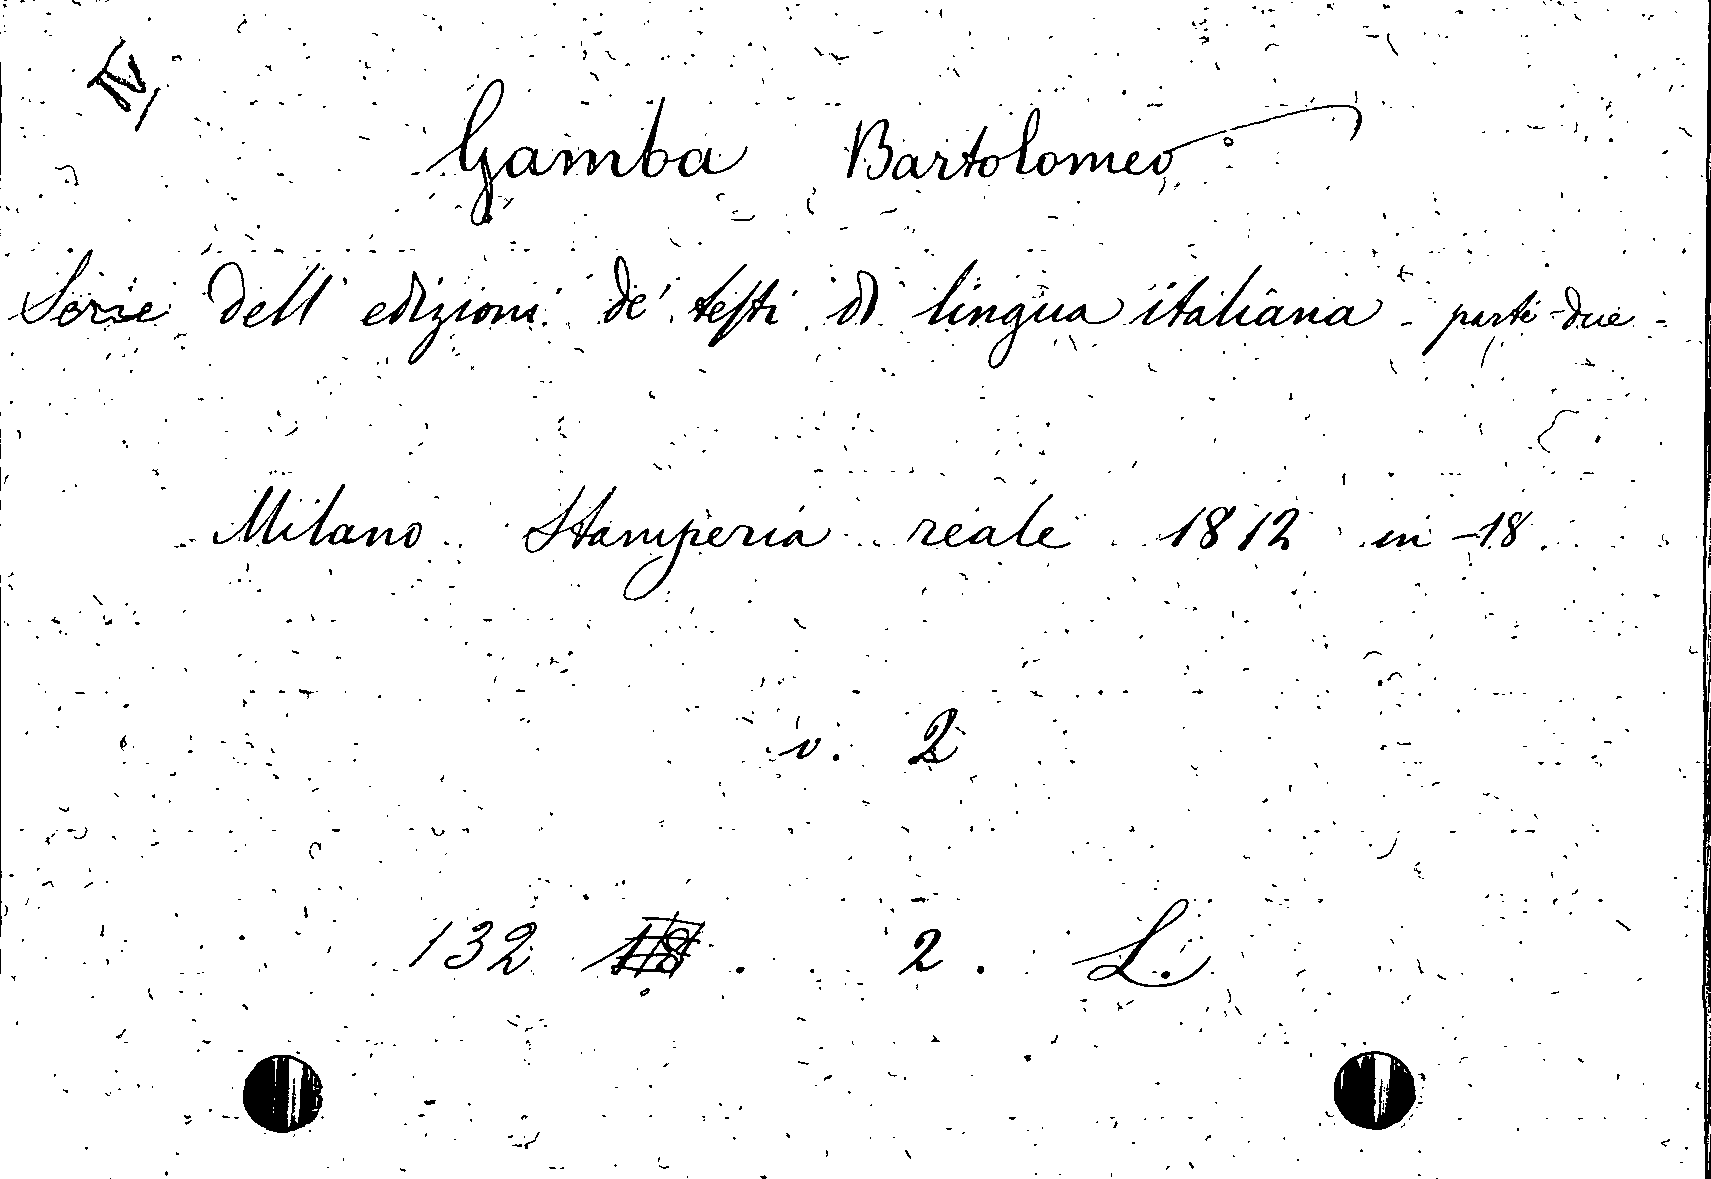 IV
Gamba Bartolomeo
Serie dell' edizioni de' testi di lingua italiana - parti due -
Milano Stamperia reale 1812 in -18
v. 2
132 . 2. L.